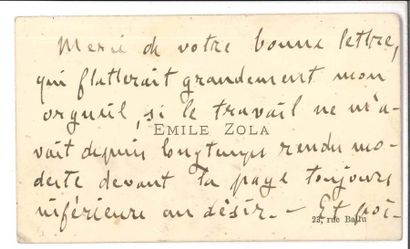 Merci de votre bonne lettre,
qui flatterait grandement mon
orgueil, si le travail ne m'a-
EMILE ZOLA
vait depuis longtemps rendu mo-
deste devant la page toujours
inférieure au désir. - Et
23, rue Ballu